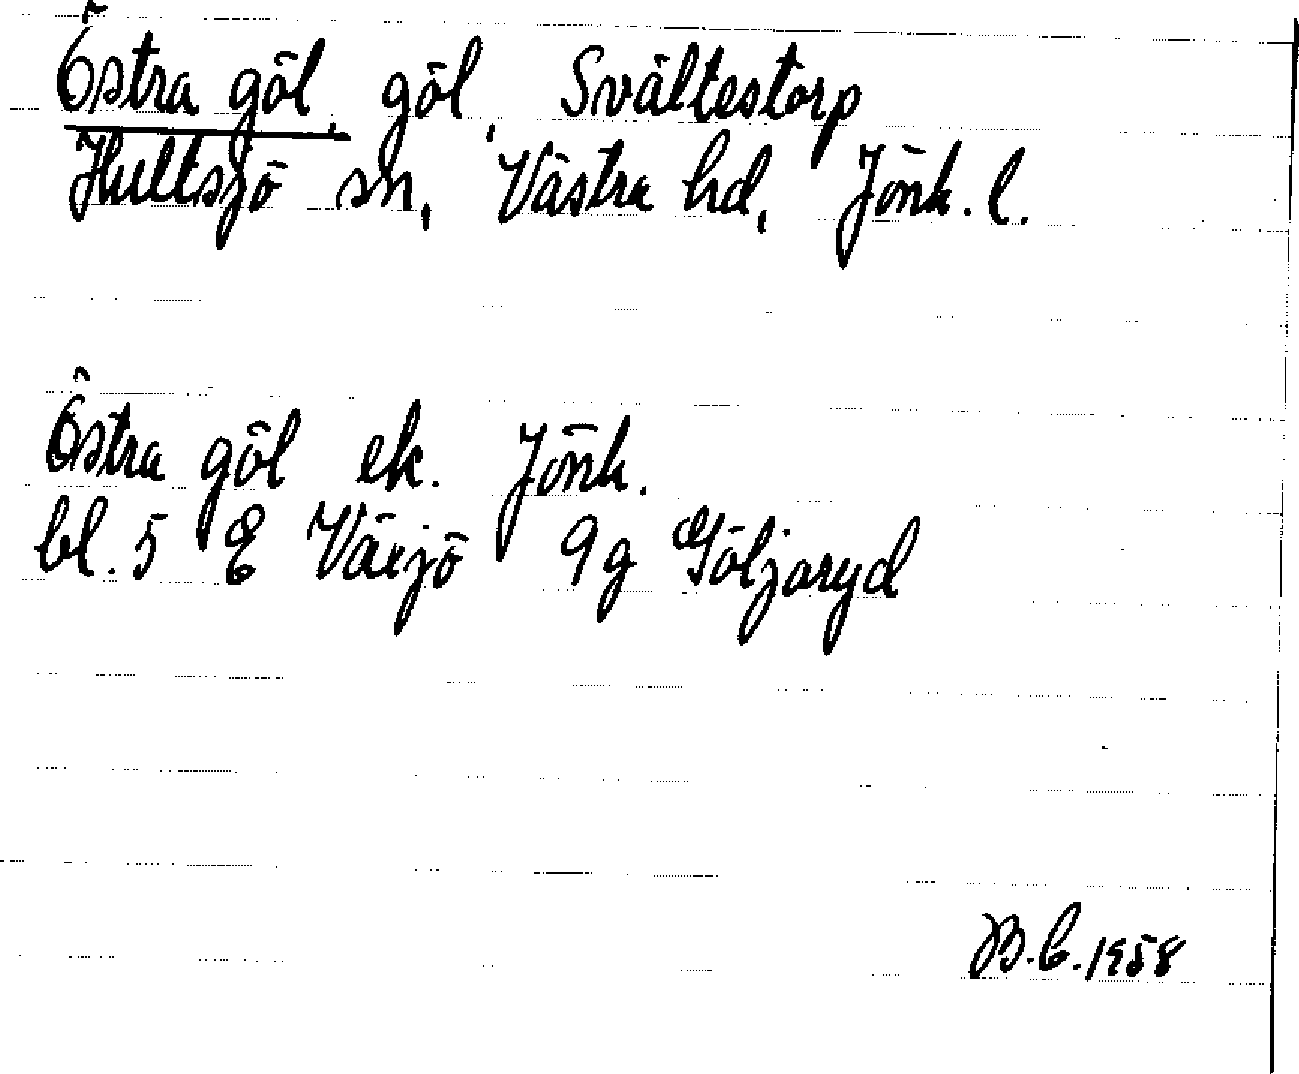 Östra göl, göl, Svältestorp
Hultsjö sn, Västra hd, Jönk. l.
Östra göl ek. Jönk.
bl. 5 E Växjö 9g Göljaryd
B.E. 1958